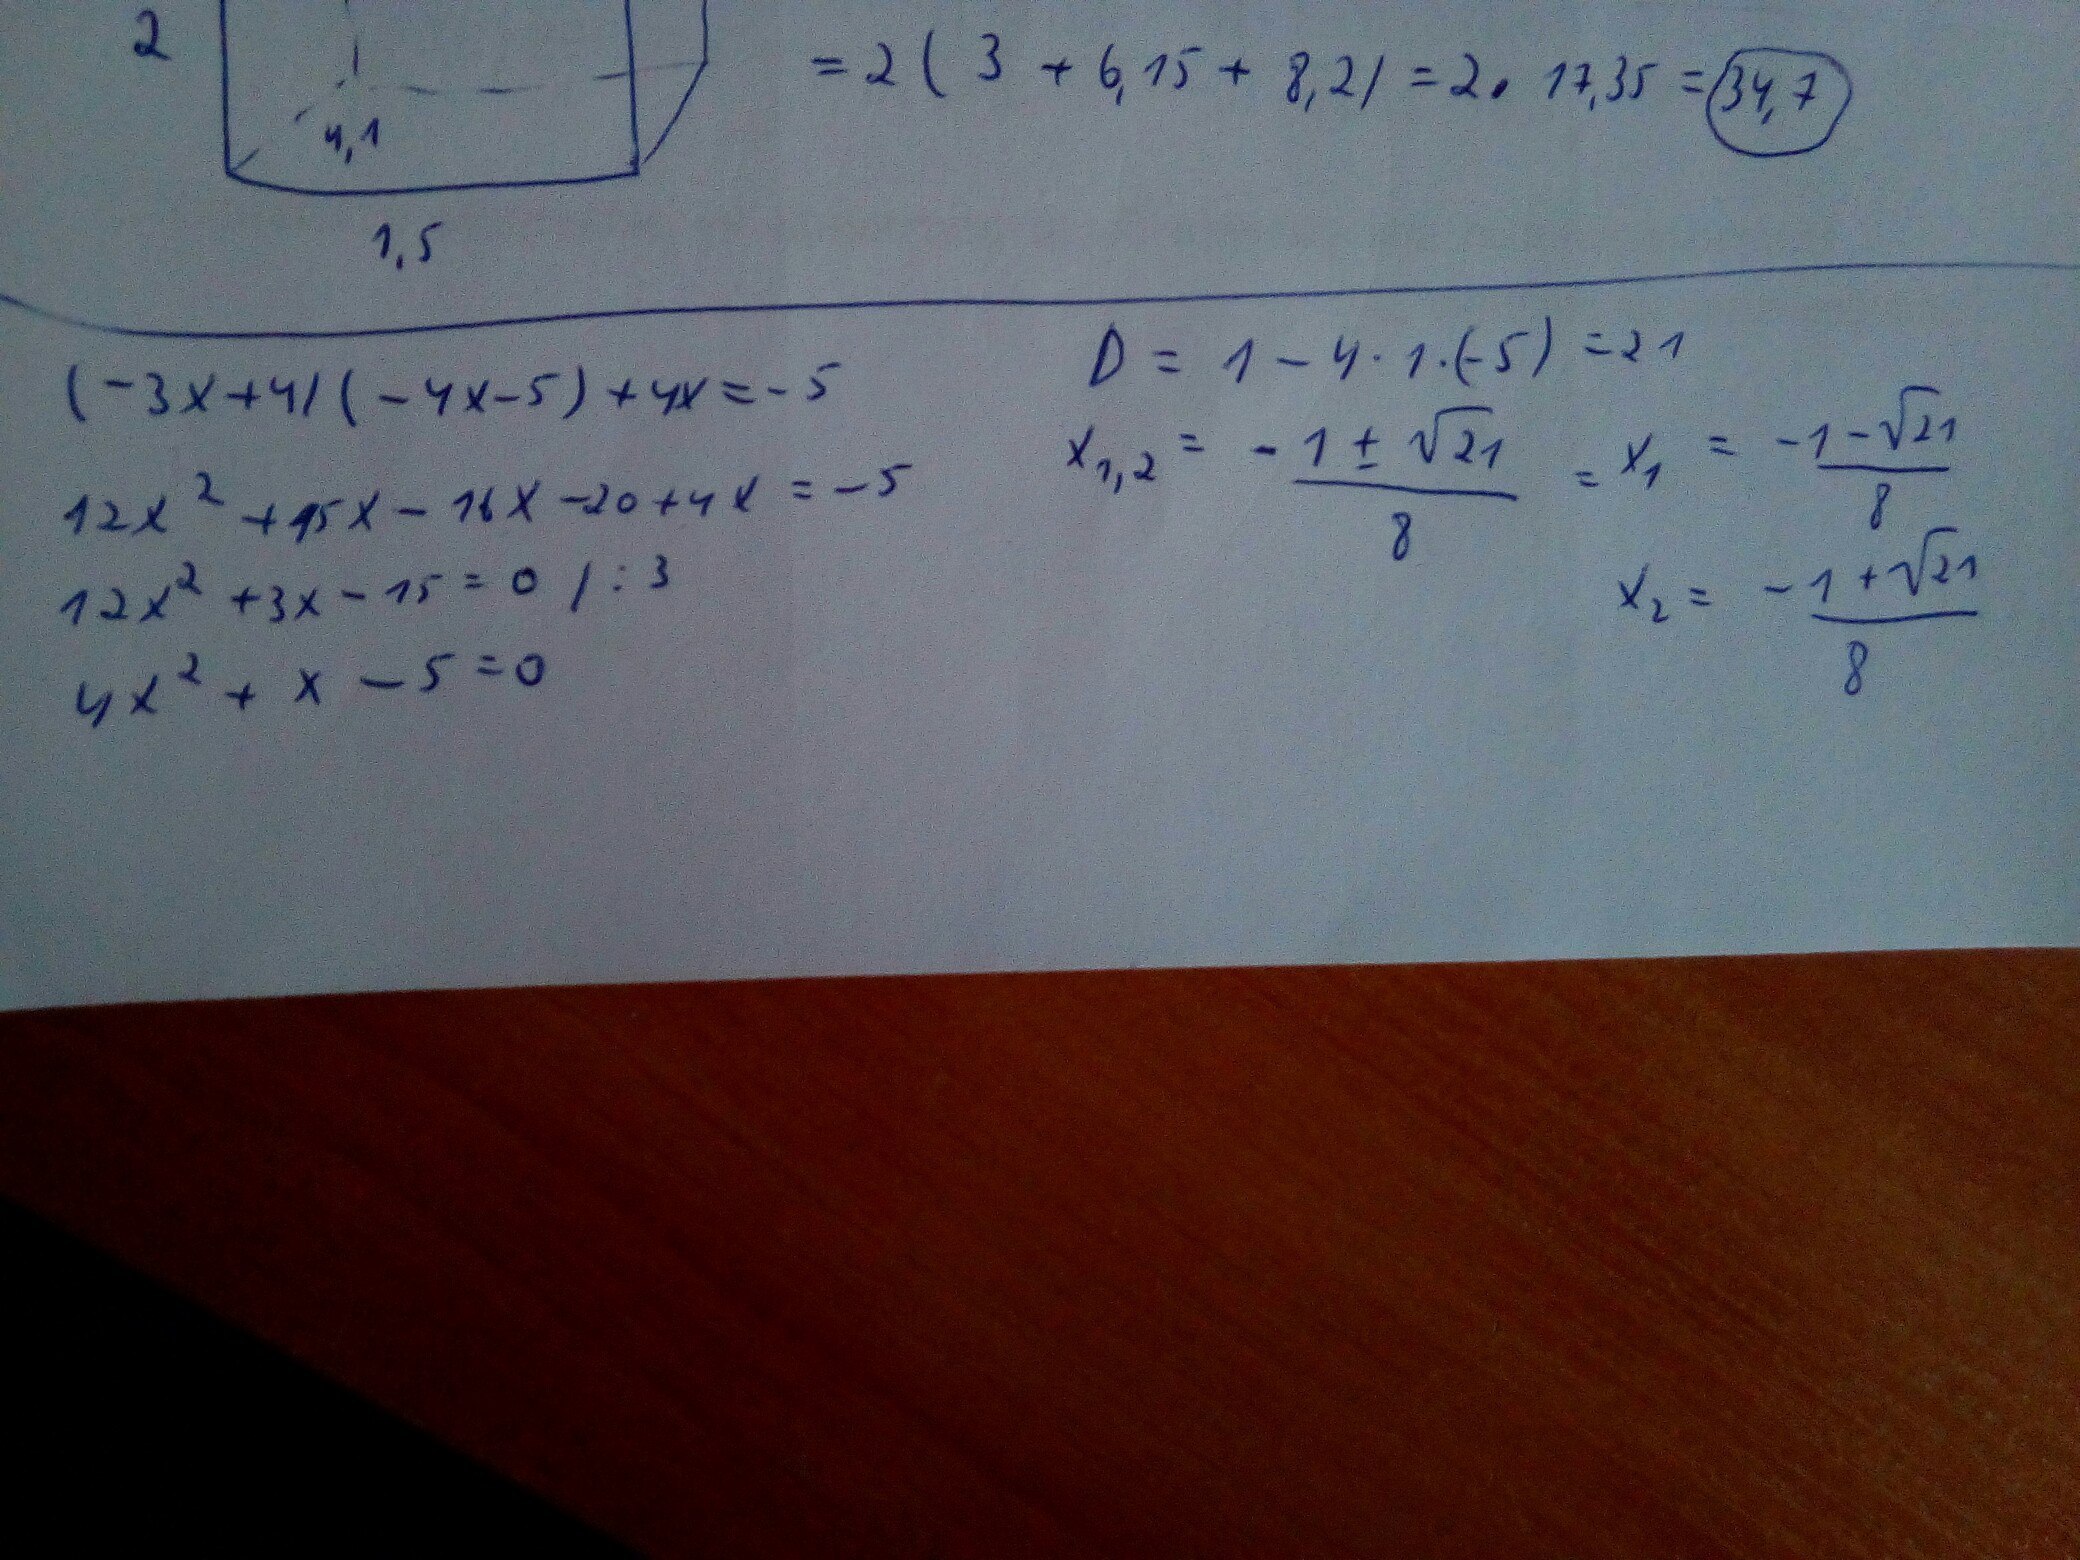 2
= 2 ( 3 + 6,15 + 8,2) = 2 · 17,35 = 34,7
4,1
1,5
(-3x+4)(-4x-5)+4x=-5
12x² +15x - 16x -20+4x = -5
12x² +3x - 15 = 0 / : 3
4x² + x - 5 = 0
D = 1 - 4 · 1 · (-5) = 21
x1,2 = -1 ± √21 / 8 = x1 = -1 - √21 / 8
x2 = -1 + √21 / 8